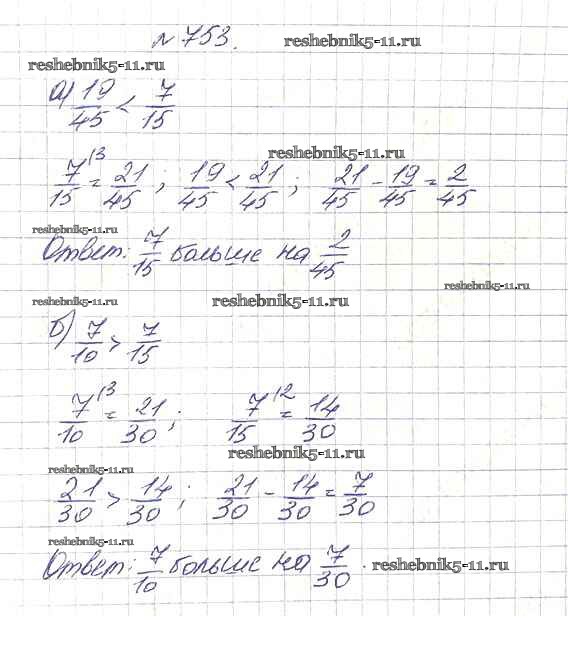 № 753. reshebnik5-11.ru
reshebnik5-11.ru
а) 19/45 < 7/15
reshebnik5-11.ru
7/15 \3 = 21/45 ; 19/45 < 21/45 ; 21/45 - 19/45 = 2/45
reshebnik5-11.ru
Ответ: 7/15 больше на 2/45
reshebnik5-11.ru
reshebnik5-11.ru reshebnik5-11.ru
б) 7/10 > 7/15
7/10 \3 = 21/30 ; 7/15 \2 = 14/30
reshebnik5-11.ru
reshebnik5-11.ru
21/30 > 14/30 ; 21/30 - 14/30 = 7/30
reshebnik5-11.ru
Ответ: 7/10 больше на 7/30 . reshebnik5-11.ru